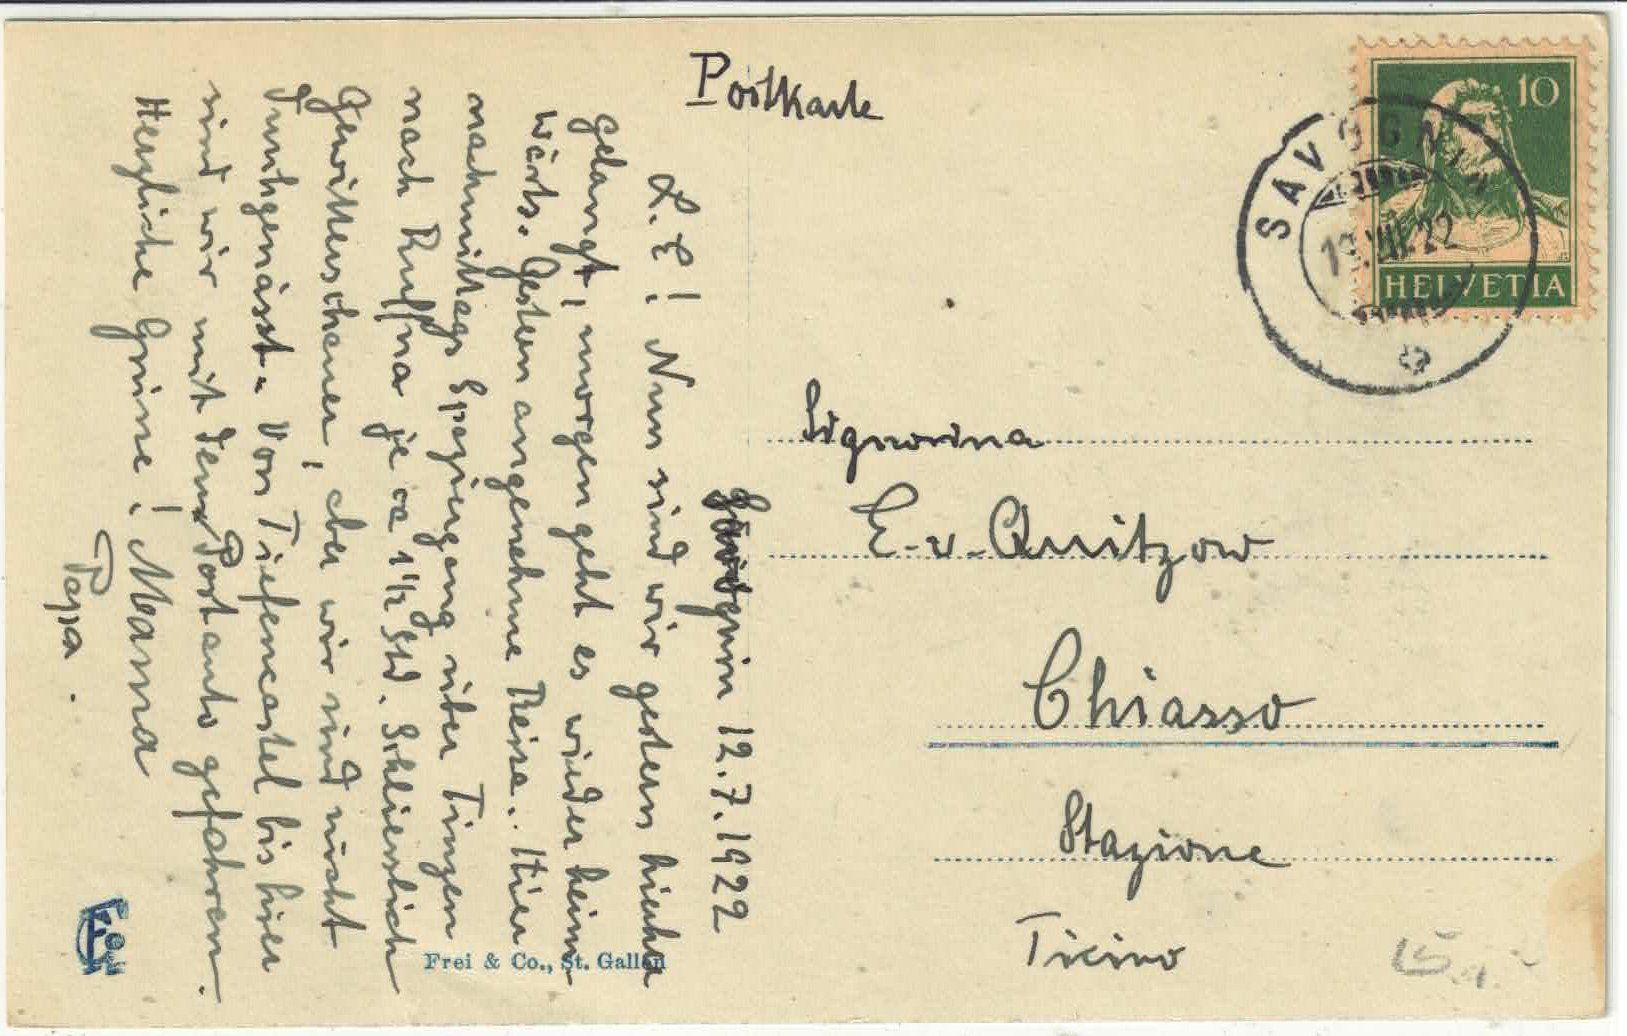 Postkarte
Savognin 12.7.1922
L. E! Nun sind wir gestern hierher
gelangt, morgen geht es wieder heim
wärts. Gestern angenehme Reise. Hier
nachmittags Spaziergang über Tinzen
nach Ruffna je ca 1½ Std. Schliesslich
Gewitterschauer, aber wir sind nicht
durchgenässt. Von Tiefencastel bis hier
sind wir mit dem Postauto gefahren.
Herzliche Grüsse! Mama
Papa.
Signorina
E. v. Quitzow
Chiasso
Stazione
Ticino
Frei & Co., St. Gallen
10
HELVETIA
SAVOGNIN
VII.22